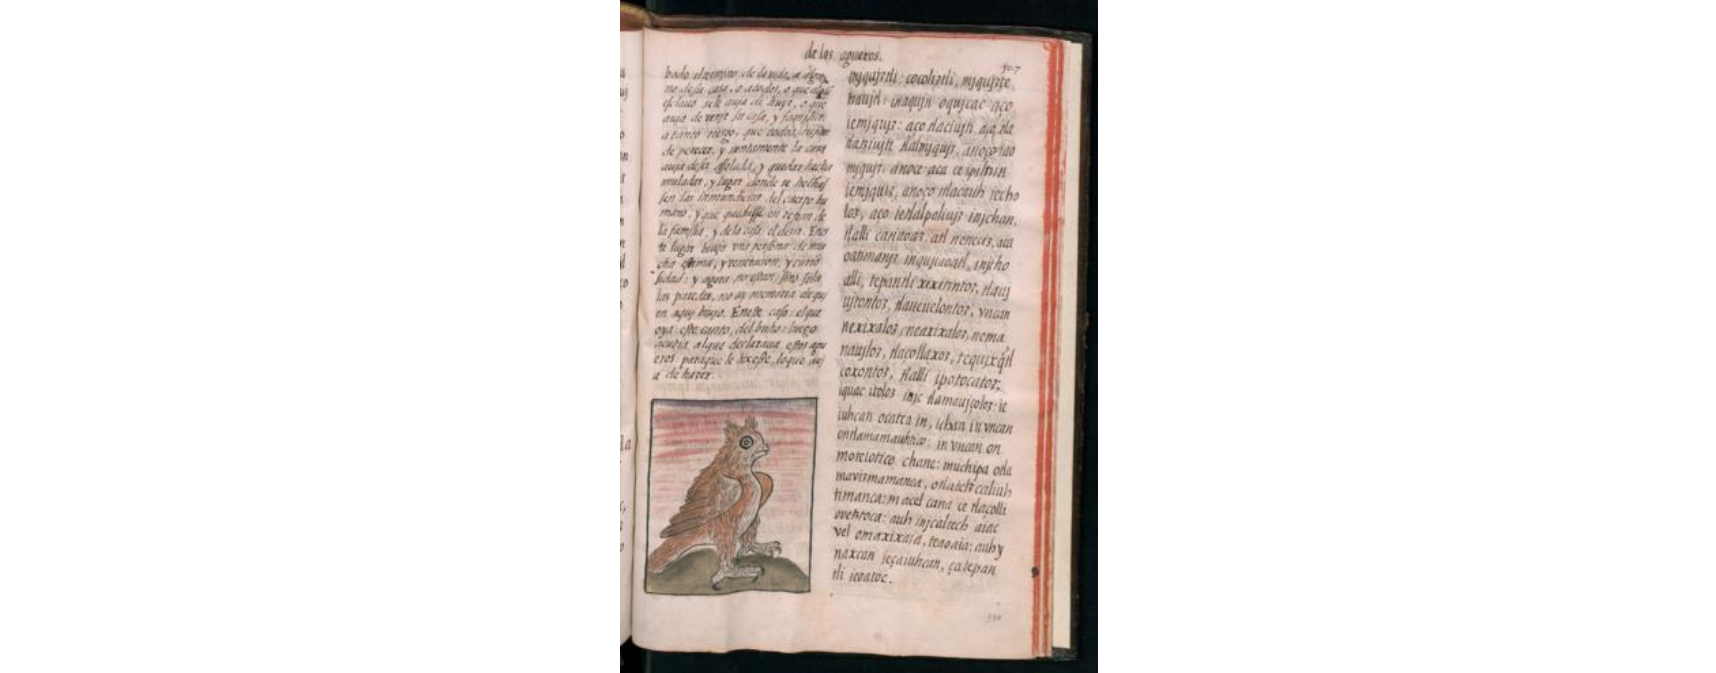 de los agueros.
307
bado el termino, de la vida, o algu
no de su casa, o a todos, o que algū
esclauo se le auja de huyr, o que
auja de venjr su casa, y familia
a tanto riesgo, que todos, aujan
de perecer, y juntamente la casa
auja de ser asolada, y quedar hecha
muladar, y lugar donde se hechas
sen las inmundicias del cuerpo hu
mano, y que quedasse en refran de
la familia, y de la casa el dezir. En es
te lugar biujo vna persona de mu
cha estima, y veneracion, y curio
sidad: y agora no estan, sino solas
las paredes, no ay memoria de quj
en aquj biujo. En este caso: el que
oya este canto, del buho: luego
acudia, al que declaraua estos agu
eros para que le dixesse, lo que auj
a de hazer.
mjqujztli: cocoliztli, mjqujzte
tzaujtl: in aqujn oqujcac aço
ie mjqujz: aço tlaciujti aço tla
tlatziujti tlalmjqujz, anoço iao
mjqujz: anoce aca ce ipiltzin
ie mjqujz, anoço itlacauh iecho
loz, aço ie tlalpoliujz injchan,
tlalli canaoaz, atl neneciz, aca
oatimanjz in qujiaoatl, injtho
alli, tepantli xixitintoz, tlauj
ujtontoz, tlaueuelontoz, vncan
nexixaloz, neaxixaloz, nema
naujloz, tlaçollaxoz, tequixq̃tl
coxontoz, tlalli ipotocatoz;
iquac itoloz injc tlamaujçoloz: ie
iuhcan ocatca in, ichan in vncan
ontlamamauhtico: in vncan on
moteiotico chane: muchipa otla
mavizmamanca, otlatetzcaliuh
timanca: in acel cana ce tlaçolli
ovetztoca: auh injcaltech aiac
vel omaxixaia, teaoaia: auh y
naxcan ieçaiuhcan, çatepan
tli ieoatoc.